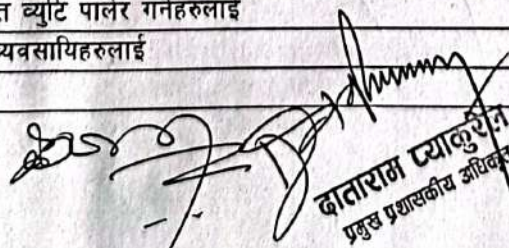 त व्युटि पार्लर गर्नेहरुलाई
यवसायिहरुलाई
दाताराम प्याकुरेल
प्रमुख प्रशासकीय अधिकृत